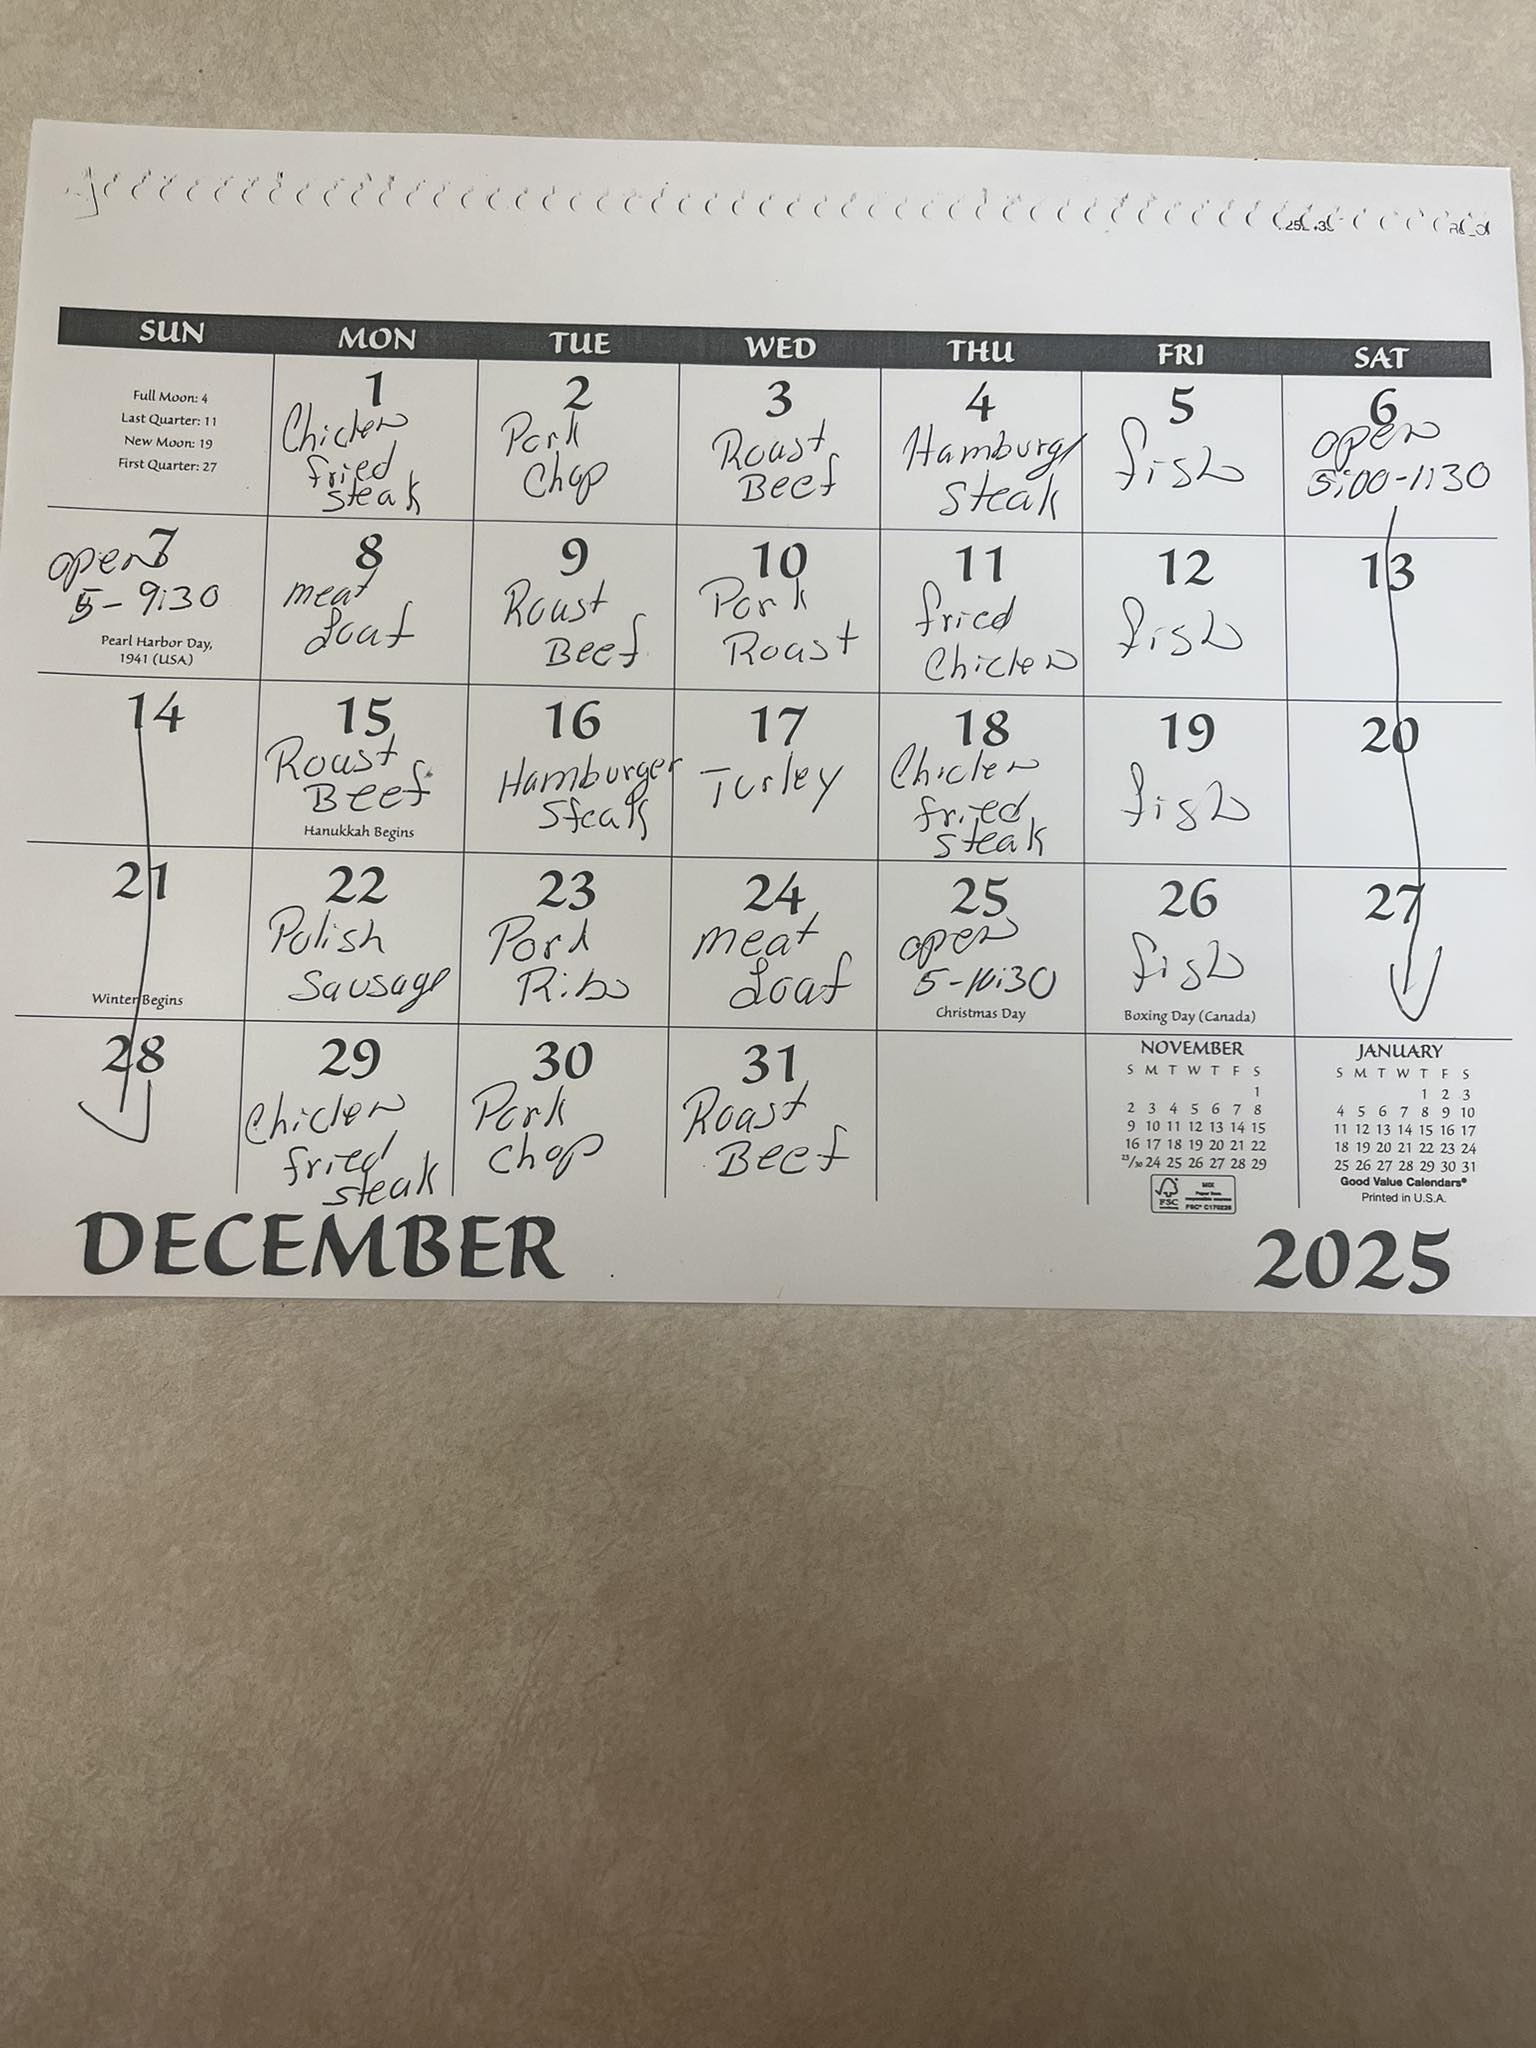 SUN MON TUE WED THU FRI SAT
Full Moon: 4
Last Quarter: 11
New Moon: 19
First Quarter: 27
1
Chicken
fried
steak
2
Pork
Chop
3
Roast
Beef
4
Hamburgr
Steak
5
fish
6
open
5:00-1:30
7
open
5-9:30
Pearl Harbor Day,
1941 (USA)
8
meat
Loaf
9
Roast
Beef
10
Pork
Roast
11
fried
Chicken
12
fish
13
14
15
Roast
Beef
Hanukkah Begins
16
Hamburger
Steak
17
Turkey
18
Chicken
fried
steak
19
fish
20
21
Winter Begins
22
Polish
Sausage
23
Pork
Ribs
24
meat
Loaf
25
open
5-10:30
Christmas Day
26
fish
Boxing Day (Canada)
27
28
29
Chicken
fried
steak
30
Pork
Chop
31
Roast
Beef
NOVEMBER
S M T W T F S
1
2 3 4 5 6 7 8
9 10 11 12 13 14 15
16 17 18 19 20 21 22
23/30 24 25 26 27 28 29
FSC
MIX
JANUARY
S M T W T F S
1 2 3
4 5 6 7 8 9 10
11 12 13 14 15 16 17
18 19 20 21 22 23 24
25 26 27 28 29 30 31
Good Value Calendars®
Printed in U.S.A.
DECEMBER 2025